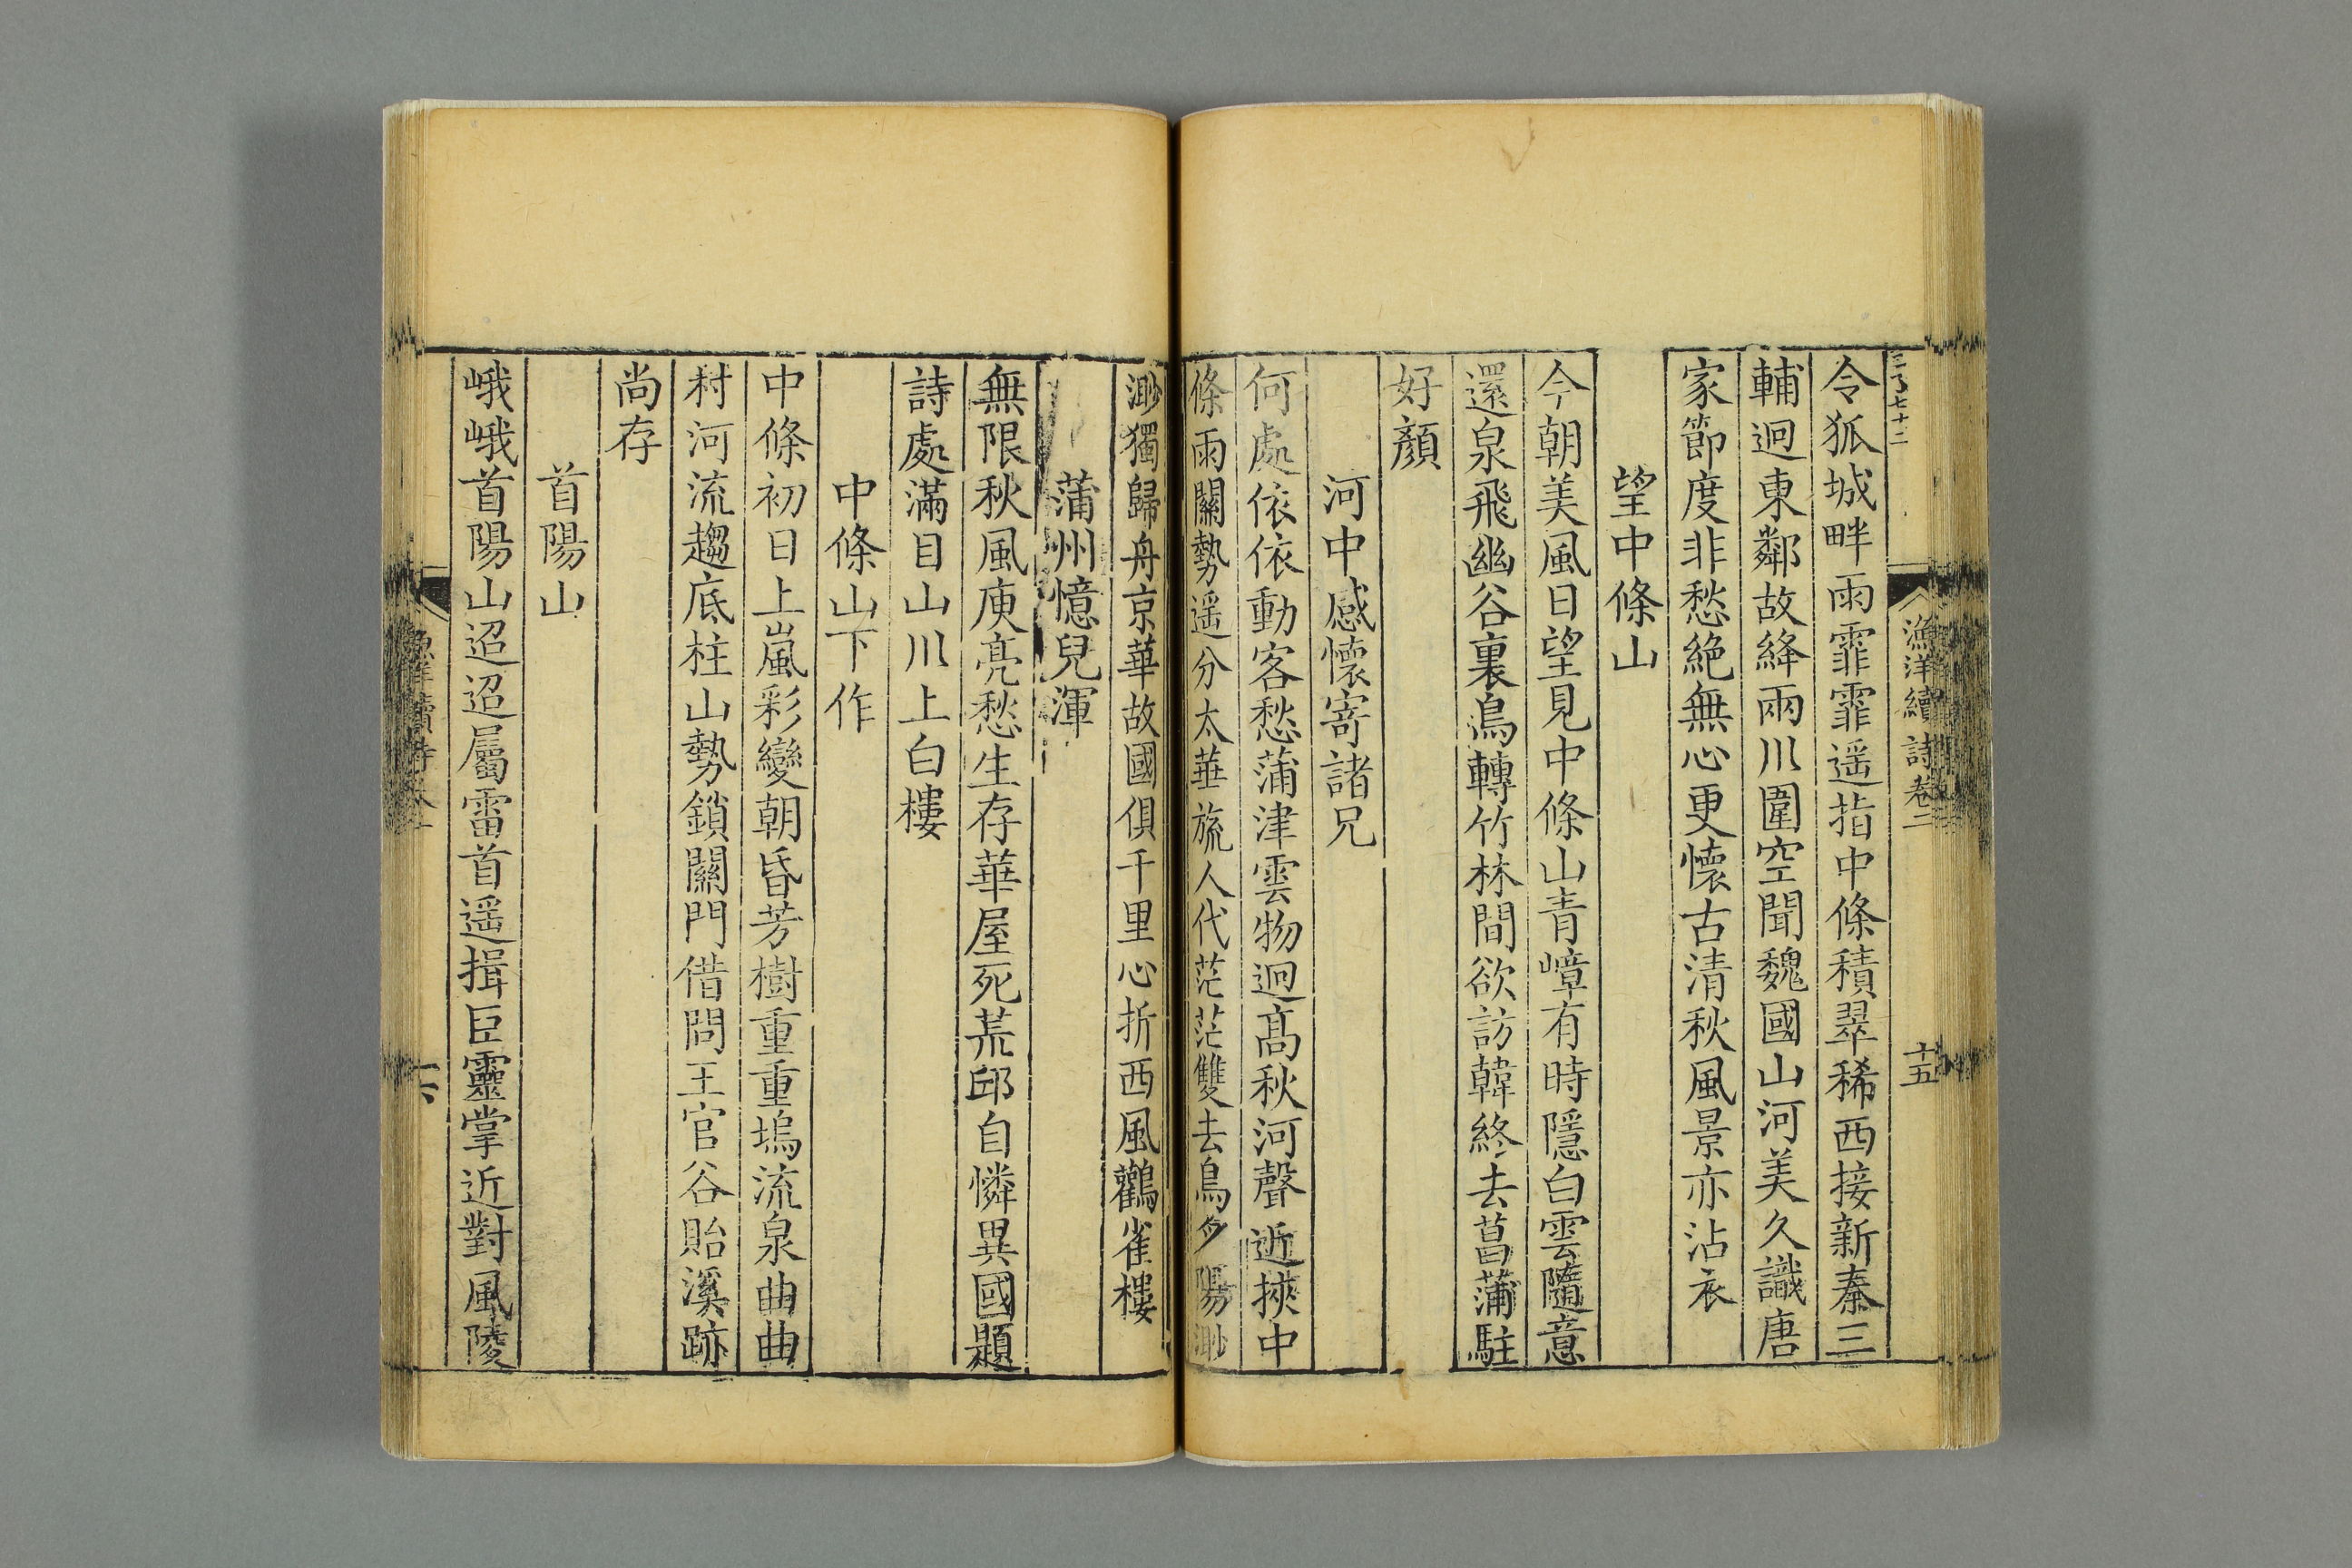 漁洋續詩卷二
十五
令狐城畔雨霏霏遥指中條積翠稀西接新秦三
輔迥東鄰故絳兩川圍空聞魏國山河美久識唐
家節度非愁絶無心更懷古清秋風景亦沾衣
望中條山
今朝美風日望見中條山青嶂有時隱白雲隨意
還泉飛幽谷裏鳥轉竹林間欲訪韓終去菖蒲駐
好顏
河中感懷寄諸兄
何處依依動客愁蒲津雲物迥高秋河聲近挾中
條雨關勢遥分太華旒人代茫茫雙去鳥夕陽渺
渺獨歸舟京華故國俱千里心折西風鸛雀樓
蒲州憶兒渾
無限秋風庾亮愁生存華屋死荒邱自憐異國題
詩處滿目山川上白樓
中條山下作
中條初日上嵐彩變朝昏芳樹重重塢流泉曲曲
村河流趨底柱山勢鎖關門借問王官谷貽溪跡
尚存
首陽山
峨峨首陽山迢迢屬雷首遥揖巨靈掌近對風陵